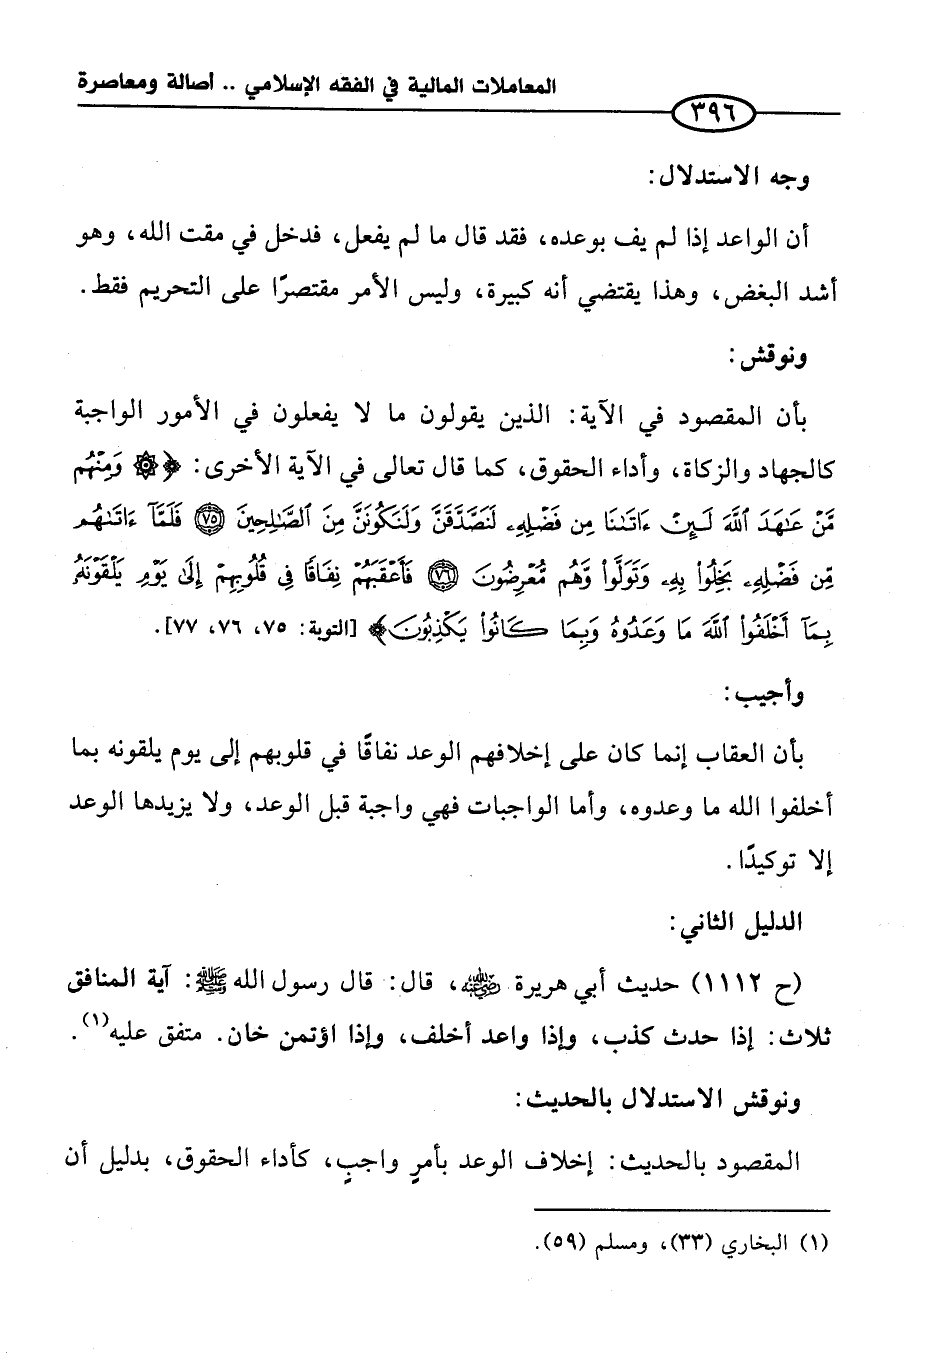 المعاملات المالية في الفقه الإسلامي .. أصالة ومعاصرة
٣٩٦
وجه الاستدلال:
أن الواعد إذا لم يف بوعده، فقد قال ما لم يفعل، فدخل في مقت الله، وهو
أشد البغض، وهذا يقتضي أنه كبيرة، وليس الأمر مقتصرًا على التحريم فقط.
ونوقش:
بأن المقصود في الآية: الذين يقولون ما لا يفعلون في الأمور الواجبة
كالجهاد والزكاة، وأداء الحقوق، كما قال تعالى في الآية الأخرى: ﴿۞ وَمِنْهُم
مَّنْ عَٰهَدَ ٱللَّهَ لَئِنْ ءَاتَىٰنَا مِن فَضْلِهِۦ لَنَصَّدَّقَنَّ وَلَنَكُونَنَّ مِنَ ٱلصَّٰلِحِينَ ۝٧٥ فَلَمَّآ ءَاتَىٰهُم
مِّن فَضْلِهِۦ بَخِلُوا۟ بِهِۦ وَتَوَلَّوا۟ وَّهُم مُّعْرِضُونَ ۝٧٦ فَأَعْقَبَهُمْ نِفَاقًا فِى قُلُوبِهِمْ إِلَىٰ يَوْمِ يَلْقَوْنَهُۥ
بِمَآ أَخْلَفُوا۟ ٱللَّهَ مَا وَعَدُوهُ وَبِمَا كَانُوا۟ يَكْذِبُونَ﴾ [التوبة: ٧٥، ٧٦، ٧٧].
وأجيب:
بأن العقاب إنما كان على إخلافهم الوعد نفاقًا في قلوبهم إلى يوم يلقونه بما
أخلفوا الله ما وعدوه، وأما الواجبات فهي واجبة قبل الوعد، ولا يزيدها الوعد
إلا توكيدًا.
الدليل الثاني:
(ح ١١١٢) حديث أبي هريرة رضي الله عنه، قال: قال رسول الله ﷺ: آية المنافق
ثلاث: إذا حدث كذب، وإذا واعد أخلف، وإذا اؤتمن خان. متفق عليه(١).
ونوقش الاستدلال بالحديث:
المقصود بالحديث: إخلاف الوعد بأمرٍ واجبٍ، كأداء الحقوق، بدليل أن
(١) البخاري (٣٣)، ومسلم (٥٩).